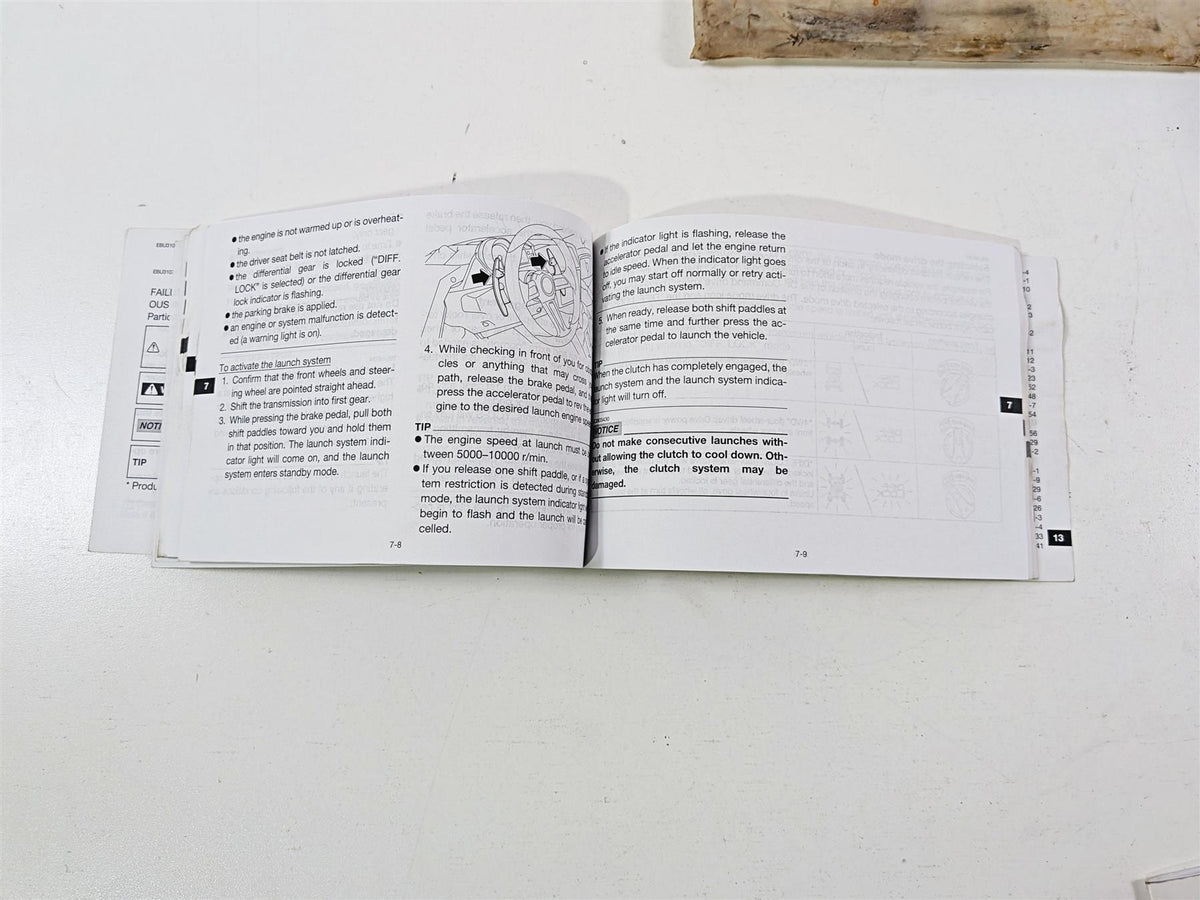 EBU310
EBU310
FAILI
OUS
Partic
NOTI
TIP
* Produ
● the engine is not warmed up or is overheat-
ing.
● the driver seat belt is not latched.
● the differential gear is locked ("DIFF.
LOCK" is selected) or the differential gear
lock indicator is flashing.
● the parking brake is applied.
● an engine or system malfunction is detect-
ed (a warning light is on).
To activate the launch system
1. Confirm that the front wheels and steer-
ing wheel are pointed straight ahead.
2. Shift the transmission into first gear.
3. While pressing the brake pedal, pull both
shift paddles toward you and hold them
in that position. The launch system indi-
cator light will come on, and the launch
system enters standby mode.
7
4. While checking in front of you for
cles or anything that may cross
path, release the brake pedal, and
press the accelerator pedal to rev the
gine to the desired launch engine
TIP
● The engine speed at launch must be
tween 5000–10000 r/min.
● If you release one shift paddle, or if a
tem restriction is detected during
mode, the launch system indicator light
begin to flash and the launch will be
celled.
7-8
● If the indicator light is flashing, release the
accelerator pedal and let the engine return
to idle speed. When the indicator light goes
off, you may start off normally or retry acti-
vating the launch system.
5. When ready, release both shift paddles at
the same time and further press the ac-
celerator pedal to launch the vehicle.
TIP
When the clutch has completely engaged, the
launch system and the launch system indica-
tor light will turn off.
NOTICE
Do not make consecutive launches with-
out allowing the clutch to cool down. Oth-
erwise, the clutch system may be
damaged.
7-9
7
-4
-1
10
2
3
-2
11
12
-3
23
52
48
-7
54
56
29
-2
-1
-9
29
-6
26
-3
-4
33
41
13